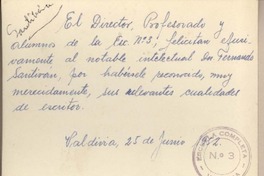 Santiván
El Director, Profesorado y
alumnos de la Esc. Nº3, felicitan efusi-
vamente al notable intelectual Don Fernando
Santiván, por habérsele reconocido, muy
merecidamente, sus relevantes cualidades
de escritor.
Valdivia, 25 de Junio 1952.
ESCUELA COMPLETA
N.o 3